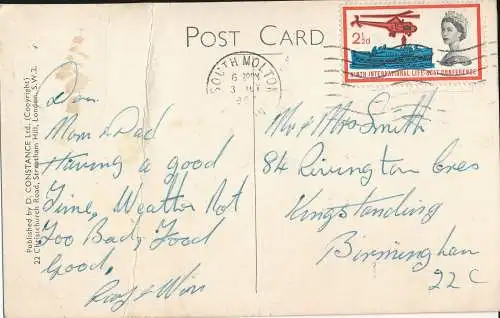 POST CARD
2½d
NINTH INTERNATIONAL LIFE-BOAT CONFERENCE
SOUTH MOLTON
Published by D. CONSTANCE Ltd., (Copyright)
22 Christchurch Road, Streatham Hill, London, S.W.2.
Dear
Mom & Dad
Having a good
Time, Weather Not
Too Bad, Food
Good,
Ray & Win
Mr & Mrs Smith
84 Rivington Cres
Kingstanding
Birmingham
22C